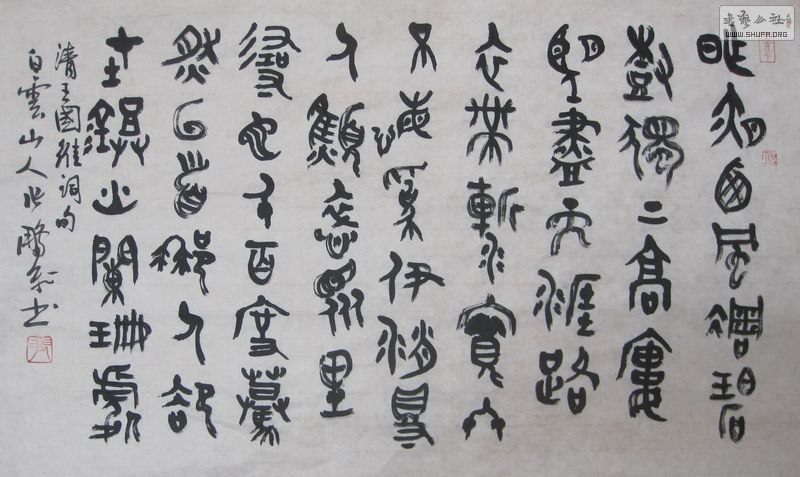 書藝公社
WWW.SHUFA.ORG
昨夜西風凋碧
樹獨上高樓
望盡天涯路
衣帶漸寬終
不悔為伊消得
人顦悴眾里
尋他千百度驀
然回首那人卻
在鐙火闌珊處
清王國維詞句
白雲山人鵬書